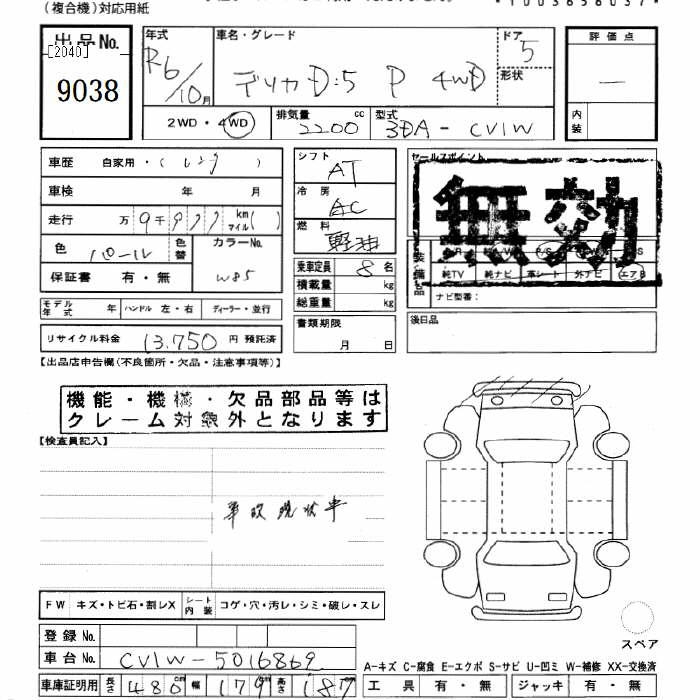 (複合機)対応用紙
*1003656037*
出品No.
[2040]
9038
年式
R6/10月
車名・グレード
デリカD:5 P 4WD
ドア
5
形状
評価点
―
内装
2WD・4WD
排気量
2200 cc
型式
3DA-CV1W
車歴 自家用・(レンタ)
車検 年 月
走行 万9千977 km マイル( )
色 パール
色替
カラーNo.
W85
保証書 有・無
モデル年式 年 ハンドル 左・右 ディーラー・並行
リサイクル料金 13,750 円 預託済
シフト
AT
冷房
AC
燃料
軽油
乗車定員 8名
積載量 kg
総重量 kg
書類期限
月 日
セールスポイント
無効
装備品
P/S
純TV 純ナビ 革シート 外ナビ エアB
ナビ型番:
後日品
【出品店申告欄(不良箇所・欠品・注意事項等)】
機能・機構・欠品部品等は
クレーム対象外となります
【検査員記入】
事故現状車
FW キズ・トビ石・割レX シート内装 コゲ・穴・汚レ・シミ・破レ・スレ
登録No.
車台No. CV1W-5016869
車庫証明用 長さ 480cm 幅 179cm 高さ 187
スペア
A-キズ C-腐食 E-エクボ S-サビ U-凹ミ W-補修 XX-交換済
工具 有・無 ジャッキ 有・無